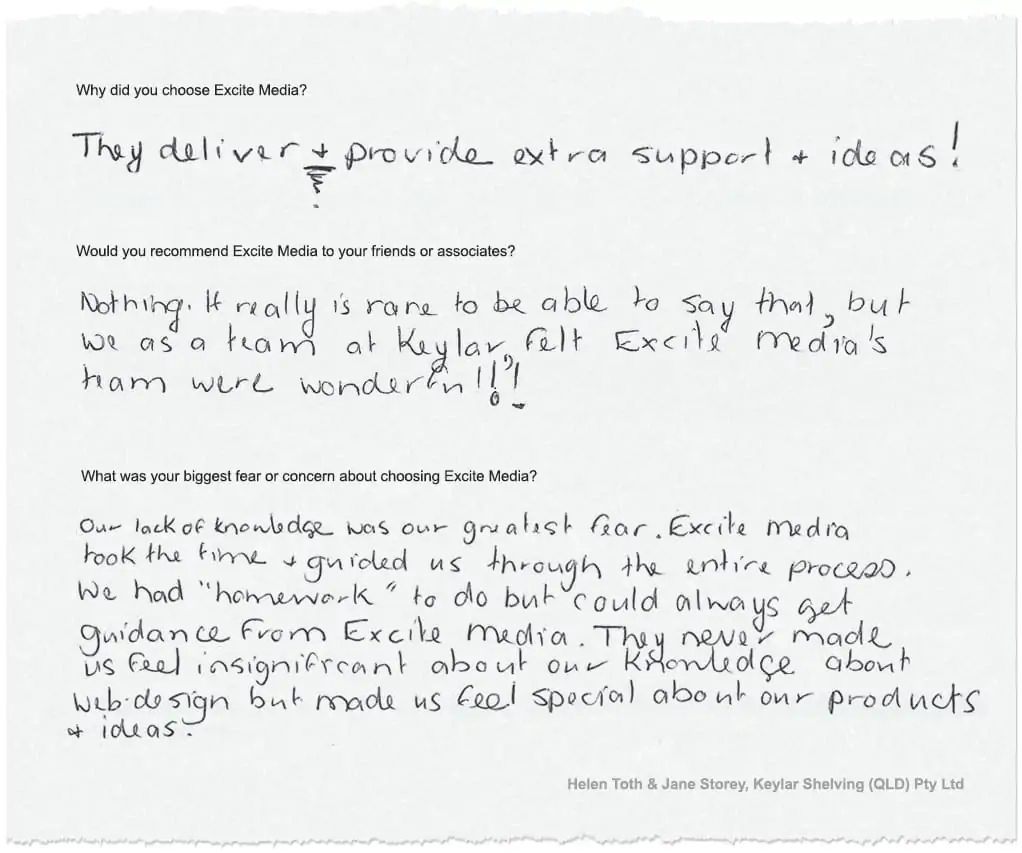 Why did you choose Excite Media?
They deliver + provide extra support + ideas!
Would you recommend Excite Media to your friends or associates?
Nothing. It really is rare to be able to say that, but
we as a team at Keylar, felt Excite media's
team were wonderful!!!
What was your biggest fear or concern about choosing Excite Media?
Our lack of knowledge was our greatest fear. Excite media
took the time + guided us through the entire process.
We had "homework" to do but could always get
guidance from Excite media. They never made
us feel insignificant about our knowledge about
web-design but made us feel special about our products
+ ideas.
Helen Toth & Jane Storey, Keylar Shelving (QLD) Pty Ltd